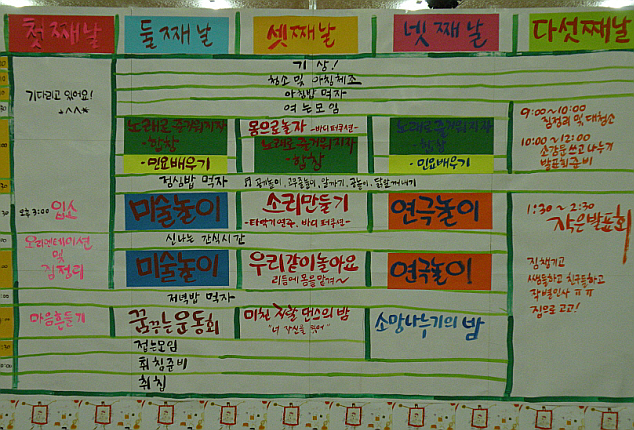 첫째날 둘째날 셋째날 넷째날 다섯째날
기상!
청소 및 아침체조
아침밥 먹자
여는모임
기다리고 있어요!
*^^*
노래로 즐거워지자
-합창
-민요배우기
몸으로놀자 -바디퍼쿠션-
노래로 즐거워지자
-합창
노래로 즐거워지자
-합창
-민요배우기
9:00~10:00
짐정리 및 대청소
10:00~12:00
소감문 쓰고 나누기
발표회 준비
점심밥 먹자
오후 3:00 입소
미술놀이
소리만들기
-타악기연주, 바디퍼쿠션-
연극놀이
1:30~2:30
작은발표회
신나는 간식시간
오리엔테이션
및
짐정리
미술놀이
우리같이놀아요
리듬에 몸을 맡겨~
연극놀이
짐챙기고
선생님하고 친구들하고
작별인사 ㅠㅠ
집으로 고고!
저녁밥 먹자
마음흔들기
꿈꾸는 운동회
미친 작렬 댄스의 밤
"너 자신을 믿어"
소망나누기의 밤
접는모임
취침준비
취침